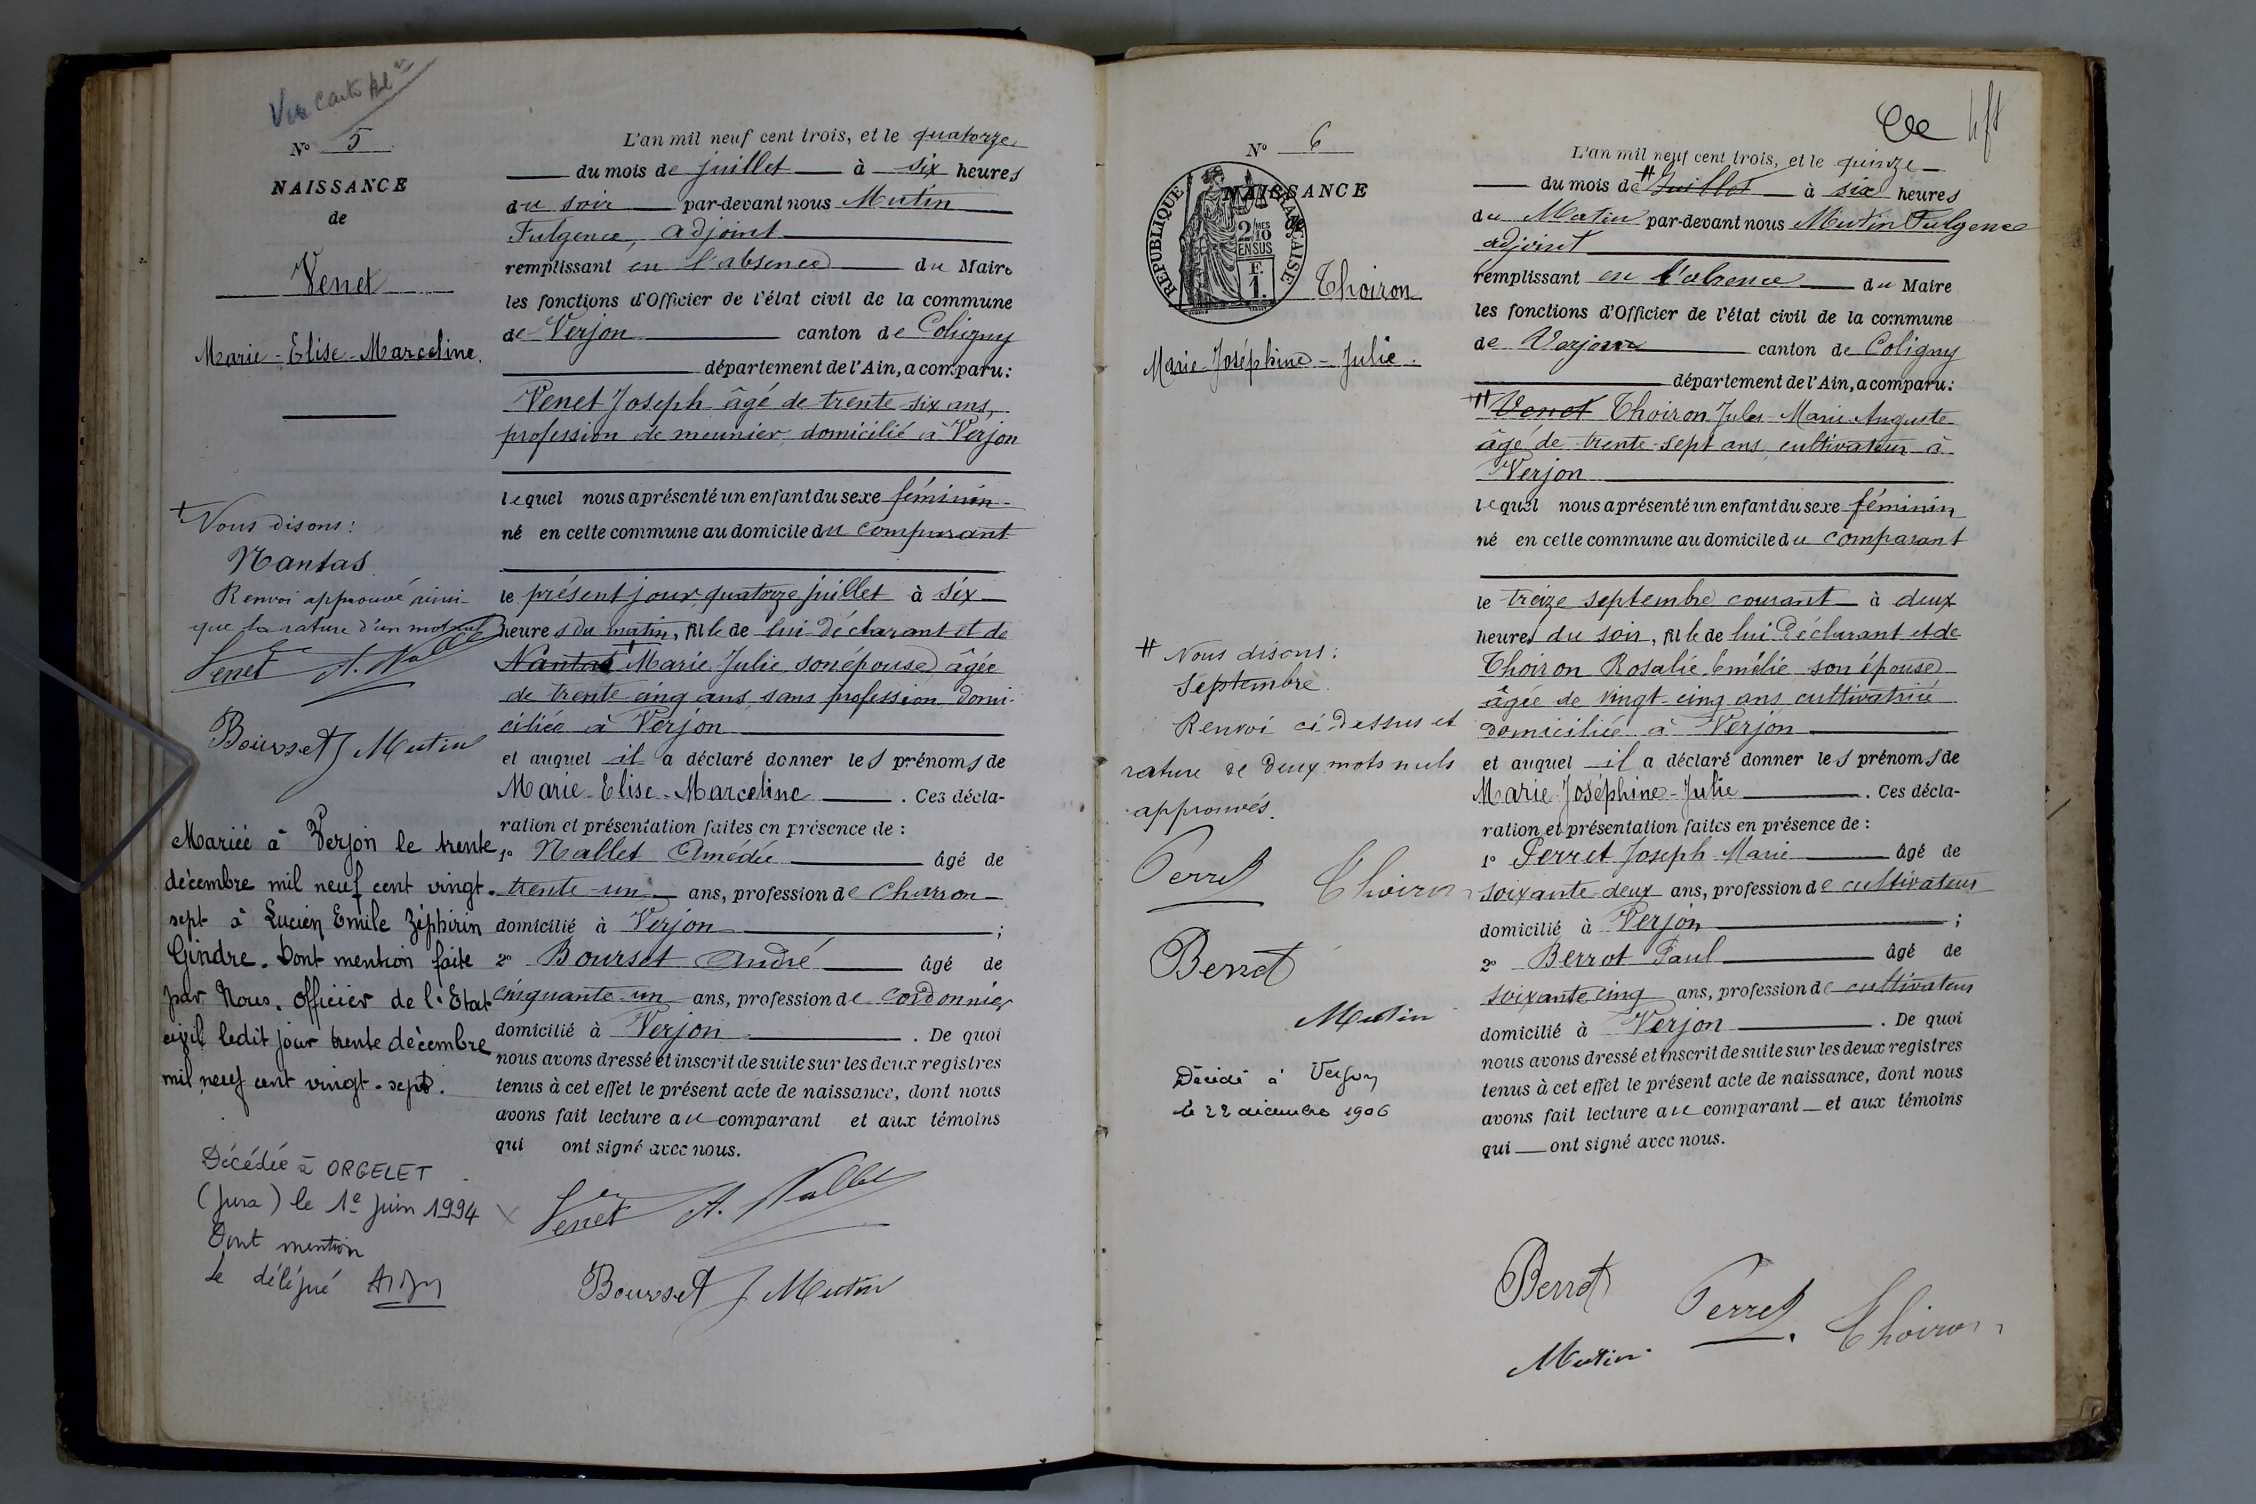 Vu Carte Al
N° 5
NAISSANCE
de
Venet
Marie-Elise-Marceline.
L'an mil neuf cent trois, et le quatorze
du mois de juillet à six heures
du soir par-devant nous Mutin
Fulgence, adjoint
remplissant en l'absence du Maire
les fonctions d'Officier de l'état civil de la commune
de Verjon canton de Coligny
département de l'Ain, a comparu:
Venet Joseph âgé de trente six ans,
profession de meunier, domicilié à Verjon
lequel nous a présenté un enfant du sexe féminin
né en cette commune au domicile du comparant
le présent jour quatorze juillet à six
heures du matin, fille de lui déclarant et de
Nantas Marie Julie, son épouse âgée
de trente cinq ans sans profession domi-
ciliée à Verjon
et auquel il a déclaré donner les prénoms de
Marie-Elise-Marceline. Ces décla-
ration et présentation faites en présence de :
1° Nallet Amédée âgé de
trente-un ans, profession de charron
domicilié à Verjon ;
2° Bourset André âgé de
cinquante-un ans, profession de cordonnier
domicilié à Verjon. De quoi
nous avons dressé et inscrit de suite sur les deux registres
tenus à cet effet le présent acte de naissance, dont nous
avons fait lecture au comparant et aux témoins
qui ont signé avec nous.
Venet A. Nallet
Bourset J Mutin
Nous disons:
Nantas
Renvoi approuvé ainsi
que la rature d'un mot nul
Venet A. Nallet
Bourset J Mutin
Mariée à Verjon le trente
décembre mil neuf cent vingt-
sept à Lucien Emile Zéphirin
Gindre. Dont mention faite
par Nous, officier de l'Etat
civil ledit jour trente décembre
mil neuf cent vingt-sept.
Décédée à ORGELET
(Jura) le 1e juin 1994
Dont mention
Le délégué
N° 6
NAISSANCE
de
REPUBLIQUE FRANÇAISE
2 MES
10
EN SUS
F.
1.
Thoiron
Marie-Joséphine-Julie.
L'an mil neuf cent trois, et le quinze
du mois de Juillet à six heures
du Matin par-devant nous Mutin Fulgence
adjoint
remplissant en l'absence du Maire
les fonctions d'Officier de l'état civil de la commune
de Verjon canton de Coligny
département de l'Ain, a comparu:
Venet Thoiron Jules Marie Auguste
âgé de trente-sept ans, cultivateur à
Verjon
lequel nous a présenté un enfant du sexe féminin
né en cette commune au domicile du comparant
le treize septembre courant à deux
heures du soir, fille de lui déclarant et de
Thoiron Rosalie Emélie son épouse
âgée de vingt-cinq ans cultivatrice
domiciliée à Verjon
et auquel il a déclaré donner les prénoms de
Marie-Joséphine-Julie. Ces décla-
ration et présentation faites en présence de :
1° Perret Joseph Marie âgé de
soixante-deux ans, profession de cultivateur
domicilié à Verjon ;
2° Berrot Paul âgé de
soixante cinq ans, profession de cultivateur
domicilié à Verjon. De quoi
nous avons dressé et inscrit de suite sur les deux registres
tenus à cet effet le présent acte de naissance, dont nous
avons fait lecture au comparant et aux témoins
qui ont signé avec nous.
Berrot
Perret Thoiron
Mutin
Nous disons:
Septembre.
Renvoi ci dessus et
rature de deux mots nuls
approuvés.
Perret Thoiron
Berrot
Mutin
Décédé à Verjon
le 22 décembre 1906